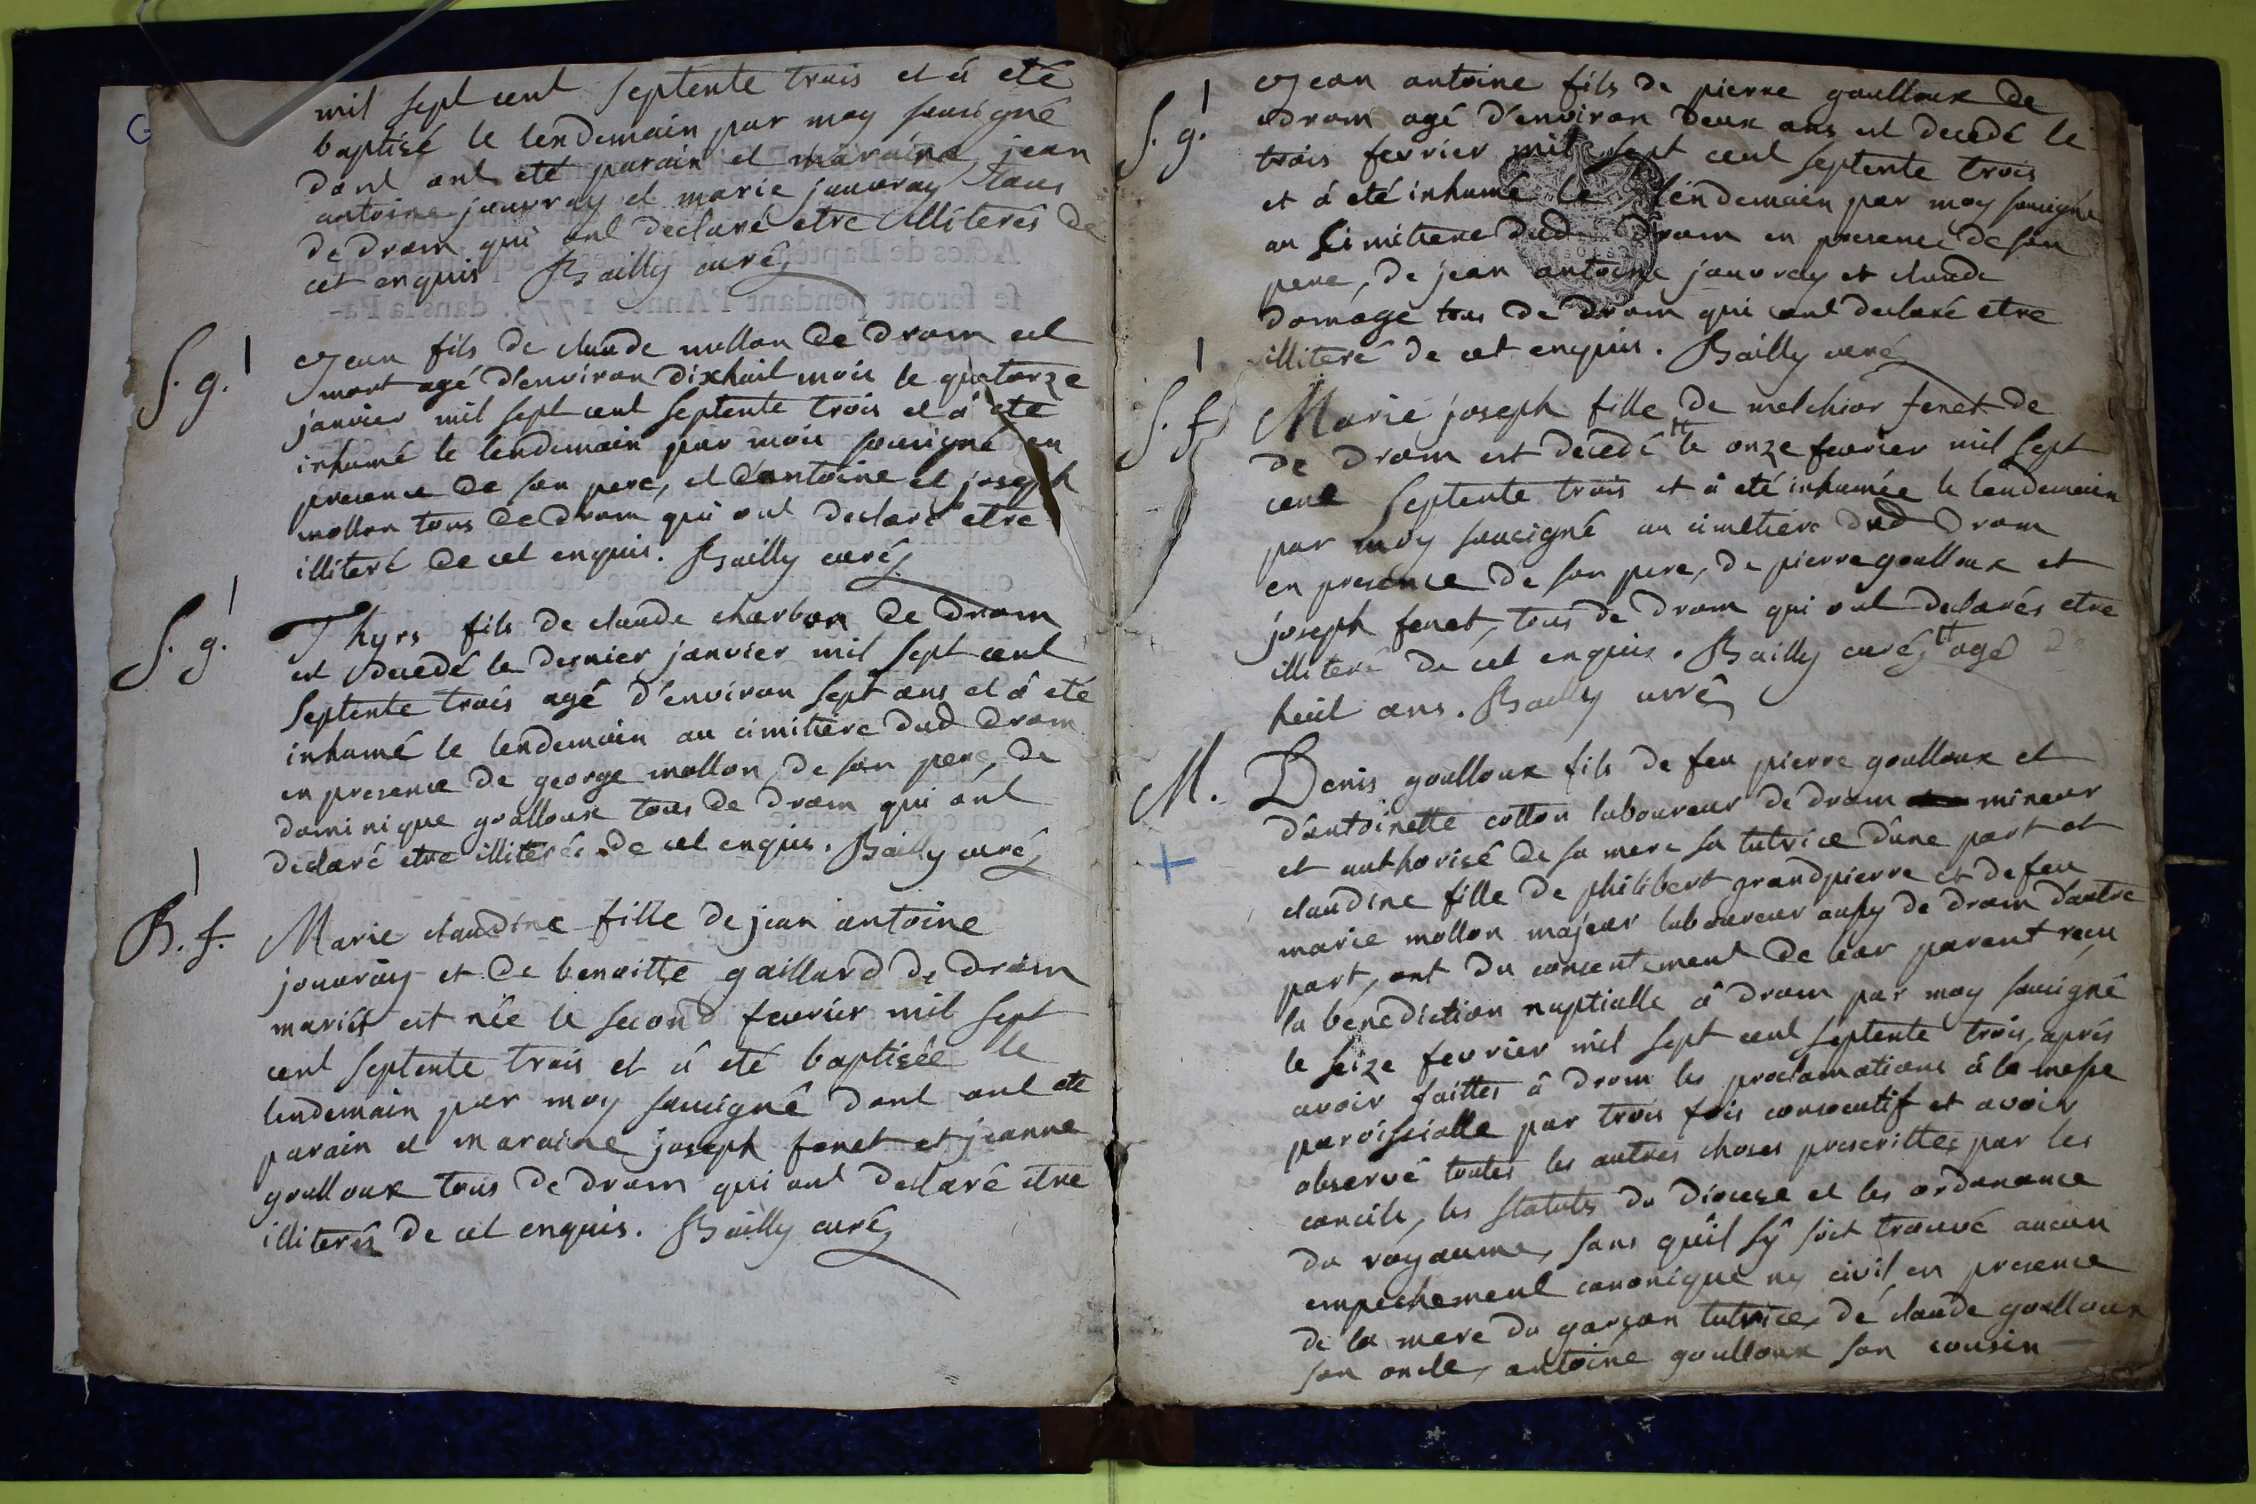 mil sept cent septente trois et á eté
baptisé le lendemain par moy sousigné
dont ont eté parain et maraine jean
antoine jouvray et marie jouvray tous
de dram qui ont declaré etre illiterés de
cet enquis Bailly curé
S. g. 1
Jean fils de claude mollon de dram est
mort agé d'environ dixhuit mois le quatorze
janvier mil sept cent septente trois et á eté
inhumé le lendemain par mois sousigné en
presence de son pere, et d'antoine et joseph
mollon tous de dram qui ont declaré etre
illiteré de cet enquis. Bailly curé
S. g. 1
Thyrs fils de claude charbon de dram
est decedé le dernier janvier mil sept cent
septente trois agé d'environ sept ans et á eté
inhumé le lendemain au cimitiere dud dram
en presence de george mollon, de son pere, de
dominique goulloux tous de dram qui ont
declaré etre illiterés de cet enquis. Bailly curé
B. f. 1
Marie claudine fille de jean antoine
jouvray et de benoitte gaillard de dram
mariés est née le second fevrier mil sept
cent septente trois et á eté baptisée le
lendemain par moy sousigné dont ont eté
parain et maraine joseph fenet et jeanne
goulloux tous de dram qui ont declaré etre
illiterés de cet enquis. Bailly curé
S. g. 1
Jean antoine fils de pierre goulloux de
dram agé d'environ deux ans est decedé le
trois fevrier mil sept cent septente trois
et á eté inhumé le lendemain par moy sousigné
au Cimitiere dud dram en presence de son
pere, de jean antoine jouvray et claude
domáge tous de dram qui ont declaré etre
illiteré de cet enquis. Bailly curé
S. f. 1
Marie joseph fille de melchior fenet de
de dram est decedé tt le onze fevrier mil sept
cent septente trois et á eté inhumée le lendemain
par moy sousigné au cimetiere dud dram
en presence de son pere, de pierre goulloux et
joseph fenet, tous de dram qui ont declarés etre
illiteré de cet enquis. Bailly curé, tt agé de
huit ans. Bailly curé
M.
Denis goulloux fils de feu pierre goulloux et
d'antoinette cotton laboureur de dram mineur
et authorisé de sa mere sa tutrice d'une part et
claudine fille de philibert grandpierre et de feu
marie mollon majeur laboureur aussy de dram d'autre
part, ont du consentement de leur parent reçu
la benediction nuptialle á dram par moy sousigné
le seize fevrier mil sept cent septente trois, aprés
avoir faittes á dram les proclamations á la messe
paroissialle par trois fois consecutif et avoir
observé toutes les autres choses prescrittes par les
concile, les statuts du diocese et les ordonance
du royaume, sans qu'il sÿ soit trouvé aucun
empechement canonique ny civil, en presence
de la mere du garçon tutrice, de claude goulloux
son oncle, antoine goulloux son cousin